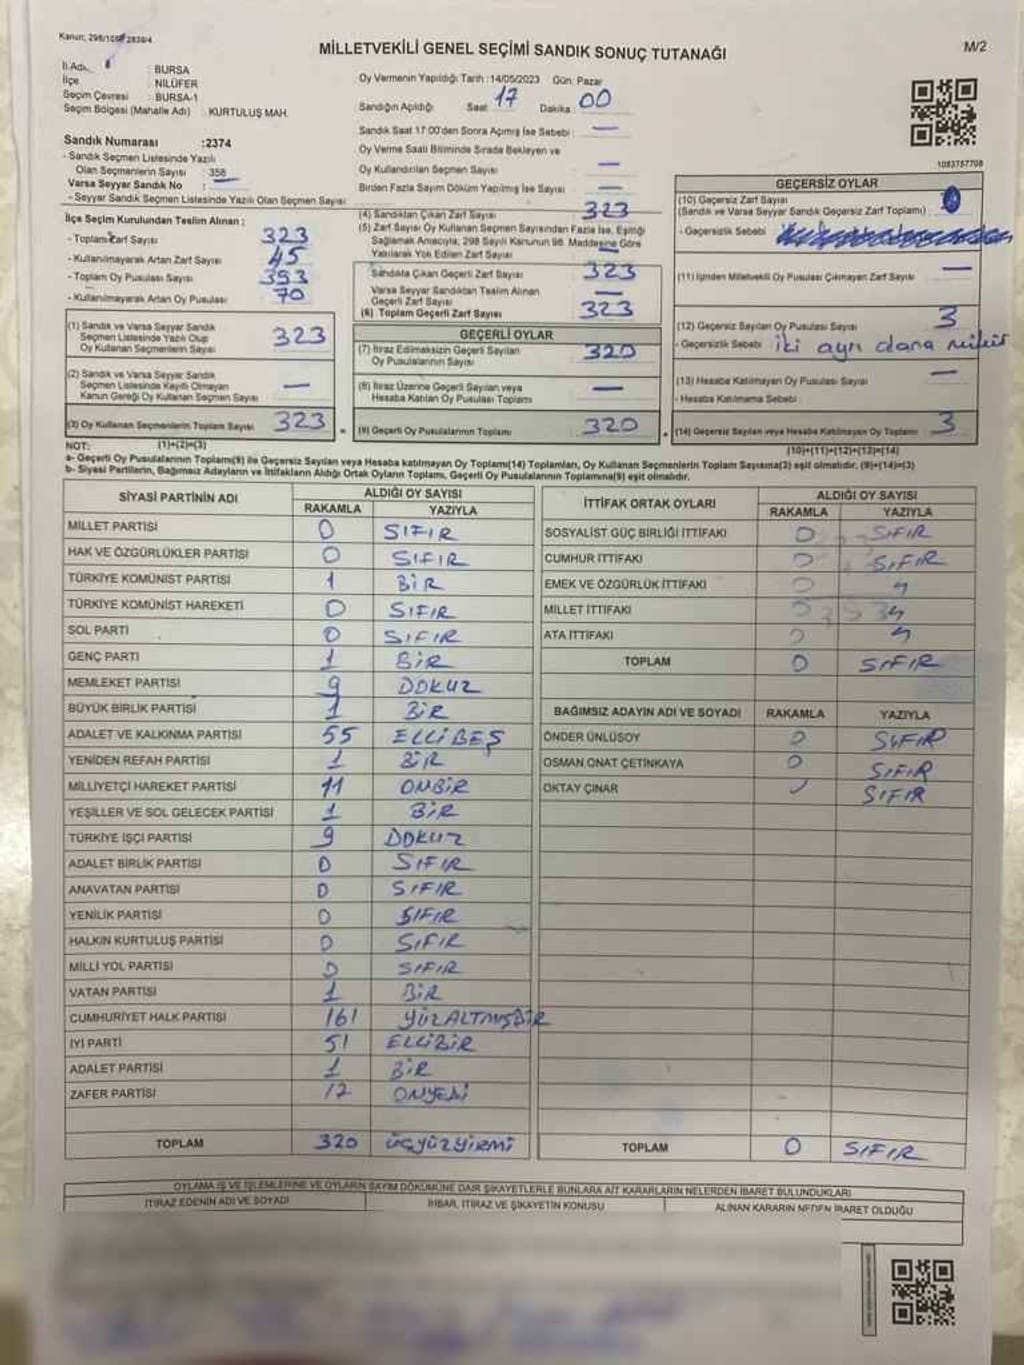 MİLLETVEKİLİ GENEL SEÇİMİ SANDIK SONUÇ TUTANAĞI
M/2
İl Adı : BURSA
İlçe : NİLÜFER
Seçim Çevresi : BURSA-1
Seçim Bölgesi (Mahalle Adı) : KURTULUŞ MAH.
Oy Vermenin Yapıldığı Tarih :14/05/2023 Gün: Pazar
Sandığın Açıldığı Saat: 17 Dakika: 00
Sandık Saat 17:00'den Sonra Açımış İse Sebebi : —
Oy Verme Saati Bitiminde Sırada Bekleyen ve
Oy Kullandırılan Seçmen Sayısı —
Birden Fazla Sayım Döküm Yapılmış İse Sayısı —
1083757708
Sandık Numarası :2374
- Sandık Seçmen Listesinde Yazılı
Olan Seçmenlerin Sayısı : 358
Varsa Seyyar Sandık No : —
- Seyyar Sandık Seçmen Listesinde Yazılı Olan Seçmen Sayısı
İlçe Seçim Kurulundan Teslim Alınan ;
- Toplam Zarf Sayısı 323
- Kullanılmayarak Artan Zarf Sayısı 45
- Toplam Oy Pusulası Sayısı 393
- Kullanılmayarak Artan Oy Pusulası 70
(1) Sandık ve Varsa Seyyar Sandık
Seçmen Listesinde Yazılı Olup
Oy Kullanan Seçmenlerin Sayısı 323
(2) Sandık ve Varsa Seyyar Sandık
Seçmen Listesinde Kayıtlı Olmayan
Kanun Gereği Oy Kullanan Seçmen Sayısı —
(3) Oy Kullanan Seçmenlerin Toplam Sayısı 323
(1)+(2)=(3)
(4) Sandıktan Çıkan Zarf Sayısı 323
(5) Zarf Sayısı Oy Kullanan Seçmen Sayısından Fazla İse, Eşitliği
Sağlamak Amacıyla; 298 Sayılı Kanunun 98. Maddesine Göre
Yakılarak Yok Edilen Zarf Sayısı —
Sandıkta Çıkan Geçerli Zarf Sayısı 323
Varsa Seyyar Sandıktan Teslim Alınan
Geçerli Zarf Sayısı —
(6) Toplam Geçerli Zarf Sayısı 323
GEÇERLİ OYLAR
(7) İtiraz Edilmeksizin Geçerli Sayılan
Oy Pusulalarının Sayısı 320
(8) İtiraz Üzerine Geçerli Sayılan veya
Hesaba Katılan Oy Pusulası Toplamı —
(9) Geçerli Oy Pusulalarının Toplamı 320
GEÇERSİZ OYLAR
(10) Geçersiz Zarf Sayısı
(Sandık ve Varsa Seyyar Sandık Geçersiz Zarf Toplamı)
- Geçersizlik Sebebi
(11) İçinden Milletvekili Oy Pusulası Çıkmayan Zarf Sayısı —
(12) Geçersiz Sayılan Oy Pusulası Sayısı 3
- Geçersizlik Sebebi : iki ayrı dana mühür
(13) Hesaba Katılmayan Oy Pusulası Sayısı —
- Hesaba Katılmama Sebebi
(14) Geçersiz Sayılan veya Hesaba Katılmayan Oy Toplamı 3
(10)+(11)+(12)+(13)=(14)
NOT:
a- Geçerli Oy Pusulalarının Toplamı(9) ile Geçersiz Sayılan veya Hesaba katılmayan Oy Toplamı(14) Toplamları, Oy Kullanan Seçmenlerin Toplam Sayısına(3) eşit olmalıdır. (9)+(14)=(3)
b- Siyasi Partilerin, Bağımsız Adayların ve İttifakların Aldığı Ortak Oyların Toplamı, Geçerli Oy Pusulalarının Toplamına(9) eşit olmalıdır.
SİYASİ PARTİNİN ADI ALDIĞI OY SAYISI
RAKAMLA YAZIYLA
MİLLET PARTİSİ 0 SIFIR
HAK VE ÖZGÜRLÜKLER PARTİSİ 0 SIFIR
TÜRKİYE KOMÜNİST PARTİSİ 1 BİR
TÜRKİYE KOMÜNİST HAREKETİ 0 SIFIR
SOL PARTİ 0 SIFIR
GENÇ PARTİ 1 BİR
MEMLEKET PARTİSİ 9 DOKUZ
BÜYÜK BİRLİK PARTİSİ 1 BİR
ADALET VE KALKINMA PARTİSİ 55 ELLİBEŞ
YENİDEN REFAH PARTİSİ 1 BİR
MİLLİYETÇİ HAREKET PARTİSİ 11 ONBİR
YEŞİLLER VE SOL GELECEK PARTİSİ 1 BİR
TÜRKİYE İŞÇİ PARTİSİ 9 DOKUZ
ADALET BİRLİK PARTİSİ 0 SIFIR
ANAVATAN PARTİSİ 0 SIFIR
YENİLİK PARTİSİ 0 SIFIR
HALKIN KURTULUŞ PARTİSİ 0 SIFIR
MİLLİ YOL PARTİSİ 0 SIFIR
VATAN PARTİSİ 1 BİR
CUMHURİYET HALK PARTİSİ 161 YÜZALTMIŞBİR
İYİ PARTİ 51 ELLİBİR
ADALET PARTİSİ 1 BİR
ZAFER PARTİSİ 17 ONYEDİ
TOPLAM 320 ÜÇYÜZYİRMİ
İTTİFAK ORTAK OYLARI ALDIĞI OY SAYISI
RAKAMLA YAZIYLA
SOSYALİST GÜÇ BİRLİĞİ İTTİFAKI 0 SIFIR
CUMHUR İTTİFAKI 0 SIFIR
EMEK VE ÖZGÜRLÜK İTTİFAKI 0
MİLLET İTTİFAKI 0
ATA İTTİFAKI 0
TOPLAM 0 SIFIR
BAĞIMSIZ ADAYIN ADI VE SOYADI RAKAMLA YAZIYLA
ÖNDER ÜNLÜSOY 0 SIFIR
OSMAN ONAT ÇETİNKAYA 0 SIFIR
OKTAY ÇINAR SIFIR
TOPLAM 0 SIFIR
OYLAMA İŞ VE İŞLEMLERİNE VE OYLARIN SAYIM DÖKÜMÜNE DAİR ŞİKAYETLERLE BUNLARA AİT KARARLARIN NELERDEN İBARET BULUNDUKLARI
İTİRAZ EDENİN ADI VE SOYADI İHBAR, İTİRAZ VE ŞİKAYETİN KONUSU ALINAN KARARIN NEDEN İBARET OLDUĞU